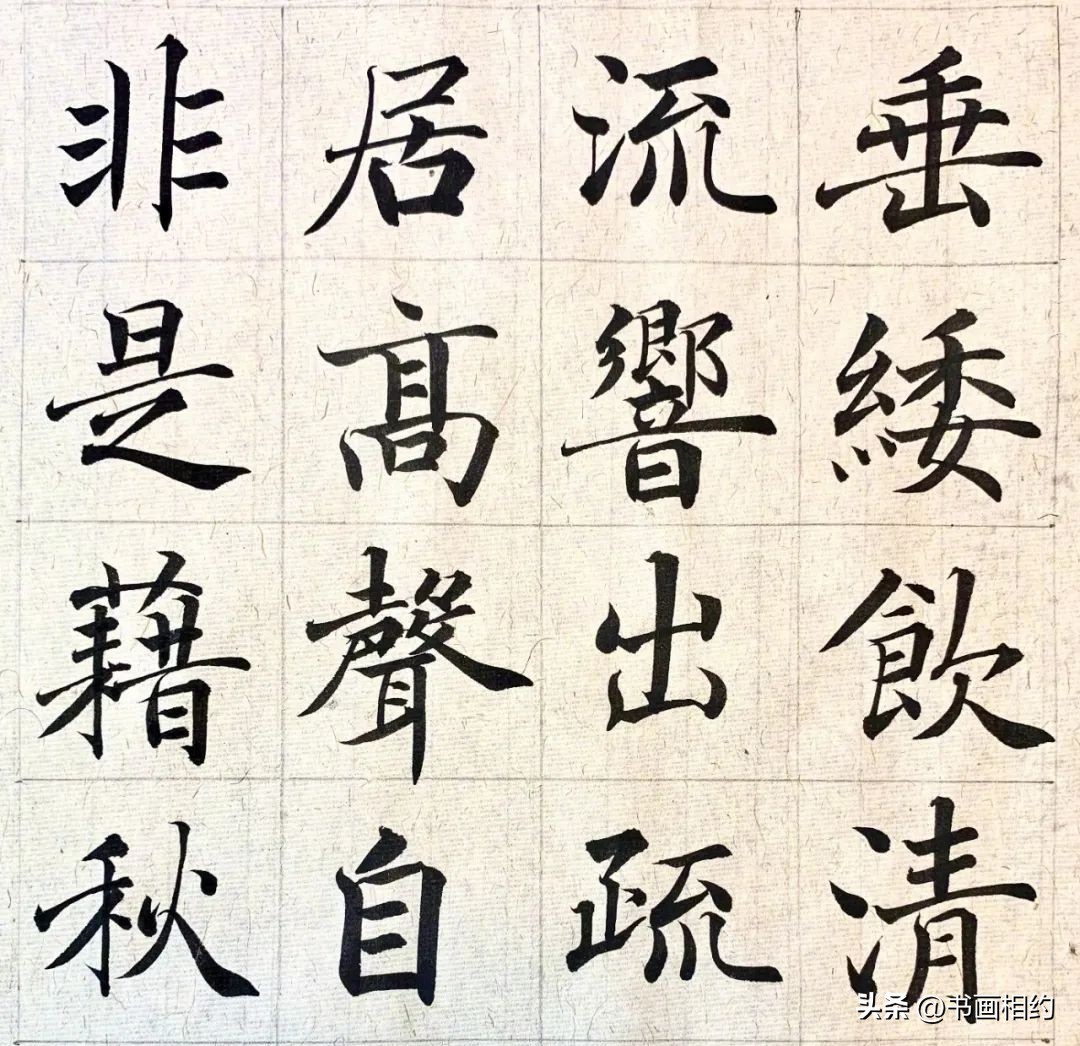 垂緌飲清
流響出疏
居高聲自
非是藉秋
头条 @书画相约